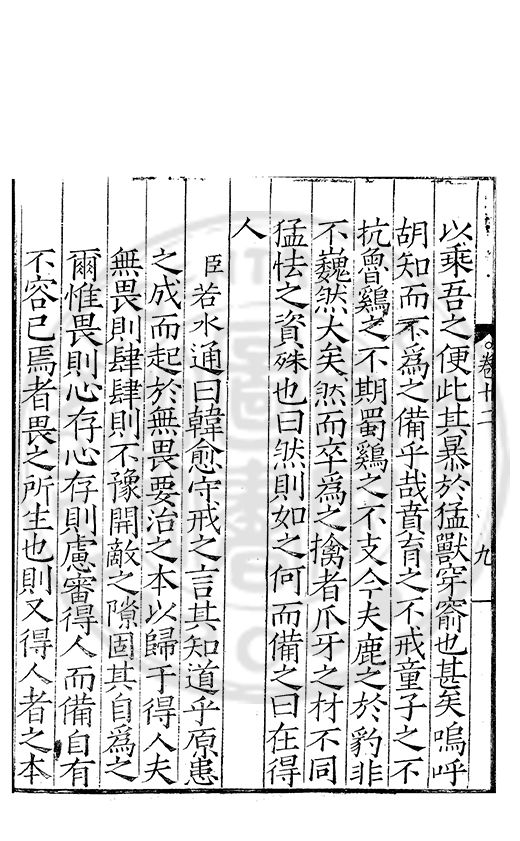 以乘吾之便此其暴於猛獸穿窬也甚矣嗚呼
胡知而不爲之備乎哉賁育之不戒童子之不
抗魯鷄之不期蜀鷄之不支今夫鹿之於豹非
不巍然大矣然而卒爲之擒者爪牙之材不同
猛怯之資殊也曰然則如之何而備之曰在得
人
臣若水通曰韓愈守戒之言其知道乎原患
之成而起於無畏要治之本以歸于得人夫
無畏則肆肆則不豫開敵之隙固其自爲之
爾惟畏則心存心存則慮審得人而備自有
不容已焉者畏之所生也則又得人者之本
卷十二
九